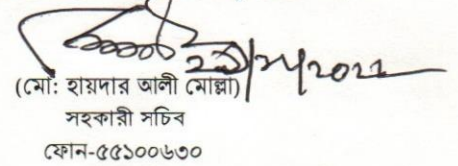 (মো: হায়দার আলী মোল্লা)
সহকারী সচিব
ফোন-৫৫১০০৬৩০